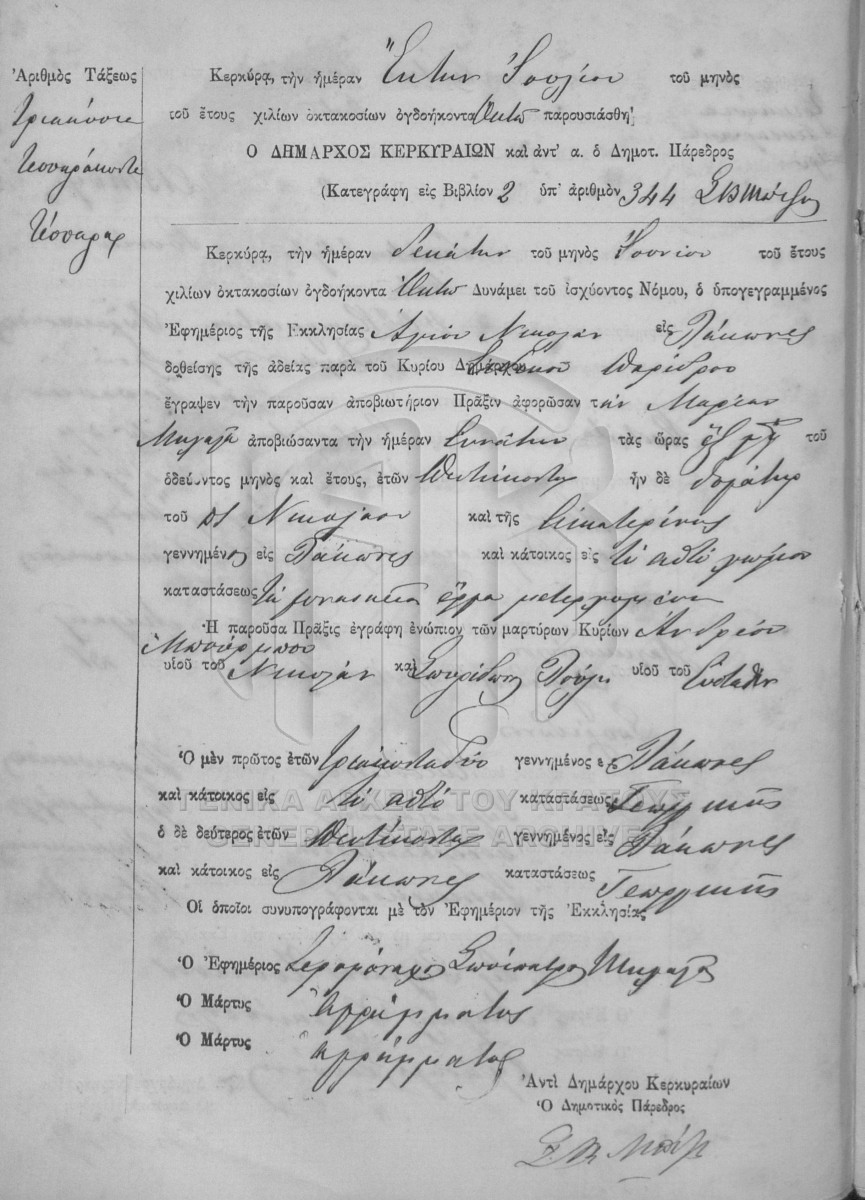 Ἀριθμὸς Τάξεως
τριακόσια
τεσσαράκοντα
τέσσαρα
Κερκύρᾳ, τὴν ἡμέραν Ἕκτην Ἰουλίου τοῦ μηνὸς
τοῦ ἔτους χιλίων ὀκτακοσίων ὀγδοήκοντα Ὀκτὼ παρουσιάσθη
Ο ΔΗΜΑΡΧΟΣ ΚΕΡΚΥΡΑΙΩΝ καὶ ἀντ' α. ὁ Δημοτ. Πάρεδρος
(Κατεγράφη εἰς Βιβλίον 2 ὑπ' ἀριθμὸν 344
Κερκύρᾳ, τὴν ἡμέραν Δεκάτην τοῦ μηνὸς Ἰουνίου τοῦ ἔτους
χιλίων ὀκτακοσίων ὀγδοήκοντα Ὀκτὼ Δυνάμει τοῦ ἰσχύοντος Νόμου, ὁ ὑπογεγραμμένος
Ἐφημέριος τῆς Ἐκκλησίας Ἁγίου Νικολάου εἰς Λάκωνες
δοθείσης τῆς ἀδείας παρὰ τοῦ Κυρίου Δημάρχου Παρέδρου
ἔγραψεν τὴν παροῦσαν ἀποβιωτήριον Πρᾶξιν ἀφορῶσαν τὴν Μαρίαν
Μιχαλᾶ ἀποβιώσαντα τὴν ἡμέραν Ἐννάτην τὰς ὥρας ἓξ μ.μ. τοῦ
ὁδεύοντος μηνὸς καὶ ἔτους, ἐτῶν ἦν δὲ θυγάτηρ
τοῦ Νικολάου καὶ τῆς Αἰκατερίνης
γεννημένος εἰς Λάκωνες καὶ κάτοικος εἰς τὸ αὐτὸ χωρίον
καταστάσεως τὰ γυναικεῖα ἔργα μετερχομένη
Ἡ παροῦσα Πρᾶξις ἐγράφη ἐνώπιον τῶν μαρτύρων Κυρίων Ἀνδρέου
Μπούρμπου
υἱοῦ τοῦ Νικολάου καὶ Σπυρίδωνος υἱοῦ τοῦ Εὐσταθίου
Ὁ μὲν πρῶτος ἐτῶν τριακονταδύο γεννημένος εἰς Λάκωνες
καὶ κάτοικος εἰς τὸ αὐτὸ καταστάσεως Γεωργικῆς
ΓΕΝΙΚΑ ΑΡΧΕΙΑ ΤΟΥ ΚΡΑΤΟΥΣ
ὁ δὲ δεύτερος ἐτῶν γεννημένος εἰς Λάκωνες
GENERAL STATE ARCHIVES
καὶ κάτοικος εἰς Λάκωνες καταστάσεως Γεωργικῆς
Οἱ ὁποῖοι συνυπογράφονται μὲ τὸν Ἐφημέριον τῆς Ἐκκλησίας
Ὁ Ἐφημέριος Ἱερομόναχος Σωσίπατρος Μιχαλᾶς
Ὁ Μάρτυς ἀγράμματος
Ὁ Μάρτυς ἀγράμματος
Ἀντὶ Δημάρχου Κερκυραίων
Ὁ Δημοτικὸς Πάρεδρος